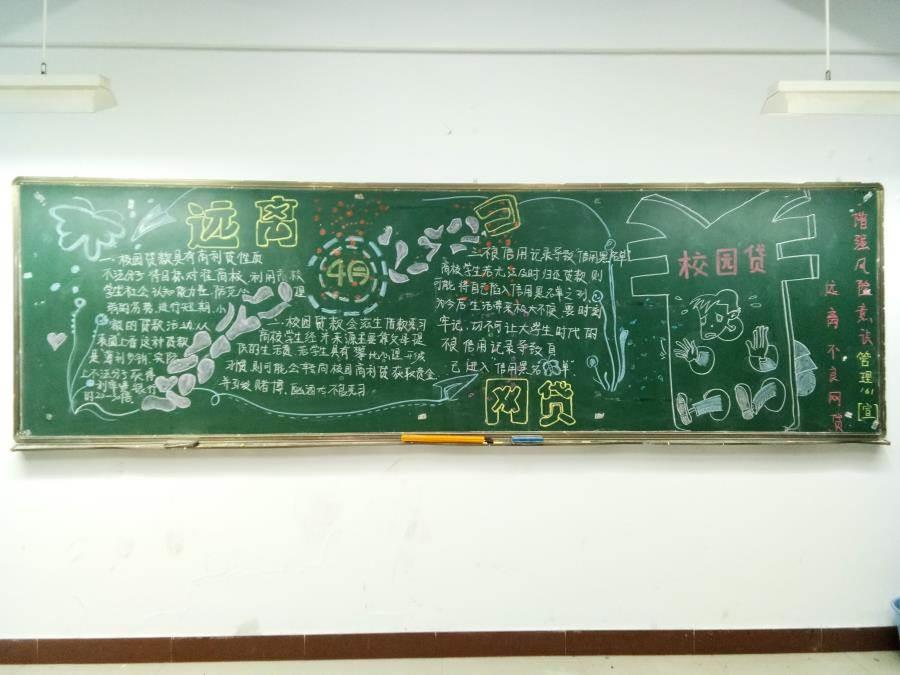 远离
网贷
4日
一、校园贷款具有高利贷性质
不法分子将目标对准高校,利用高校
学生社会认知能力
弱的劣势,进行短期、小
额的贷款活动,从
表面上看这种贷款
是薄利多销,实际
上不法分子获得
的20-30倍
二、校园贷款会滋生借款恶习
高校学生经济来源主要靠父母提
供的生活费,若学生具有攀比心理
习惯,则可能会转向校园高利贷获取资金
赌博、酗酒
三、不良信用记录导致"信用黑名单"
高校学生若无法及时归还贷款,则
可能将自己陷入信用黑名单之列,
为今后生活带来极大不便,要时刻
牢记,切不可让大学生时代的
不良信用记录导致自
己进入"信用黑名单"
校园贷
增强风险意识
远离不良网贷
管理161
宣